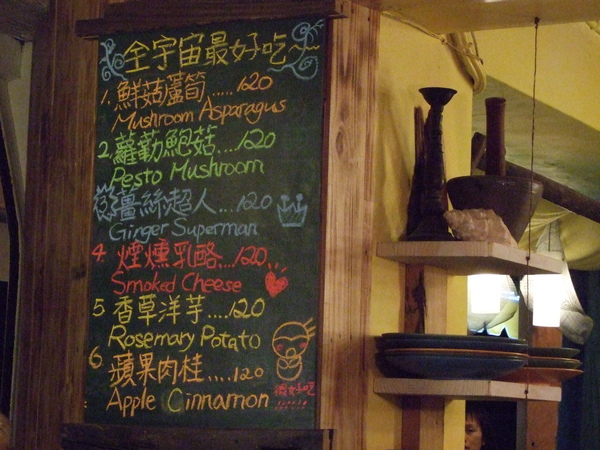 全宇宙最好吃~
1. 鮮菇蘆筍.....120
Mushroom Asparagus
2. 蘿勒鮑菇....120
Pesto Mushroom
3. 薑絲超人...120
Ginger Superman
4. 煙燻乳酪...120
Smoked Cheese
5 香草洋芋...120
Rosemary Potato
6. 蘋果肉桂....120
Apple Cinnamon
很好吃